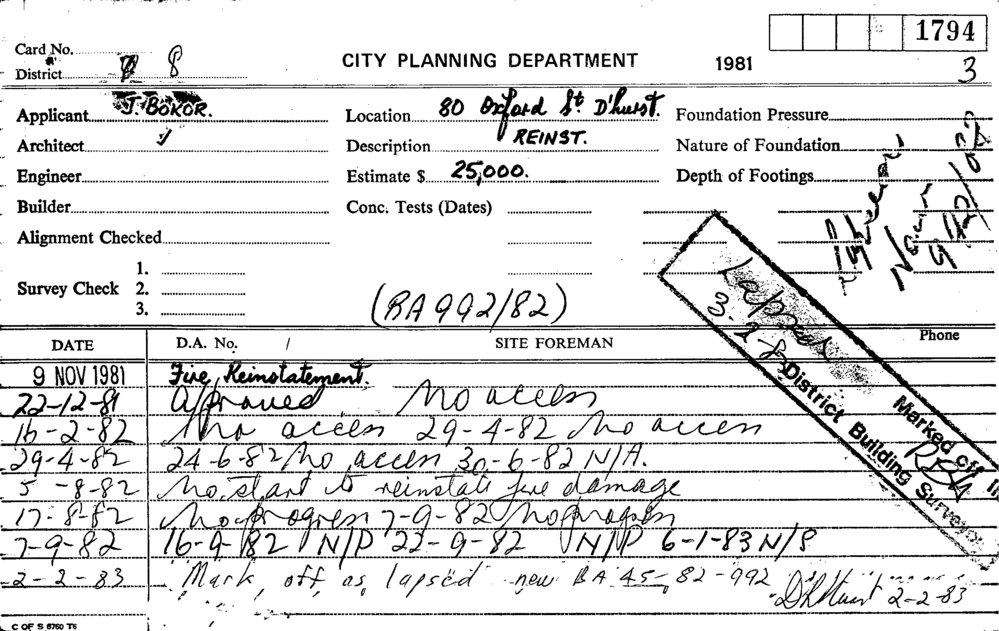 1794
Card No.
District 8
CITY PLANNING DEPARTMENT
1981
3
Applicant J. BOKOR.
Location 80 Oxford St. D'hurst.
Foundation Pressure
Architect
Description REINST.
Nature of Foundation
Engineer
Estimate $ 25,000.
Depth of Footings
Builder
Conc. Tests (Dates)
Alignment Checked
Survey Check 1.
2.
3.
(BA 992/82)
Lapsed
3-2-83
Marked off in
District Building Surveyor
DATE D.A. No. / SITE FOREMAN Phone
9 NOV 1981 Fire Reinstatement.
22-12-81 Approved No access
16-2-82 No access 29-4-82 No access
29-4-82 24-6-82 No access 30-6-82 N/A.
5-8-82 No start to reinstate fire damage
17-8-82 No progress 7-9-82 No progress
7-9-82 16-9-82 N/P 22-9-82 N/P 6-1-83 N/S
2-2-83 Mark off as lapsed new BA 45-82-992
2-2-83
C OF S 6760 T6